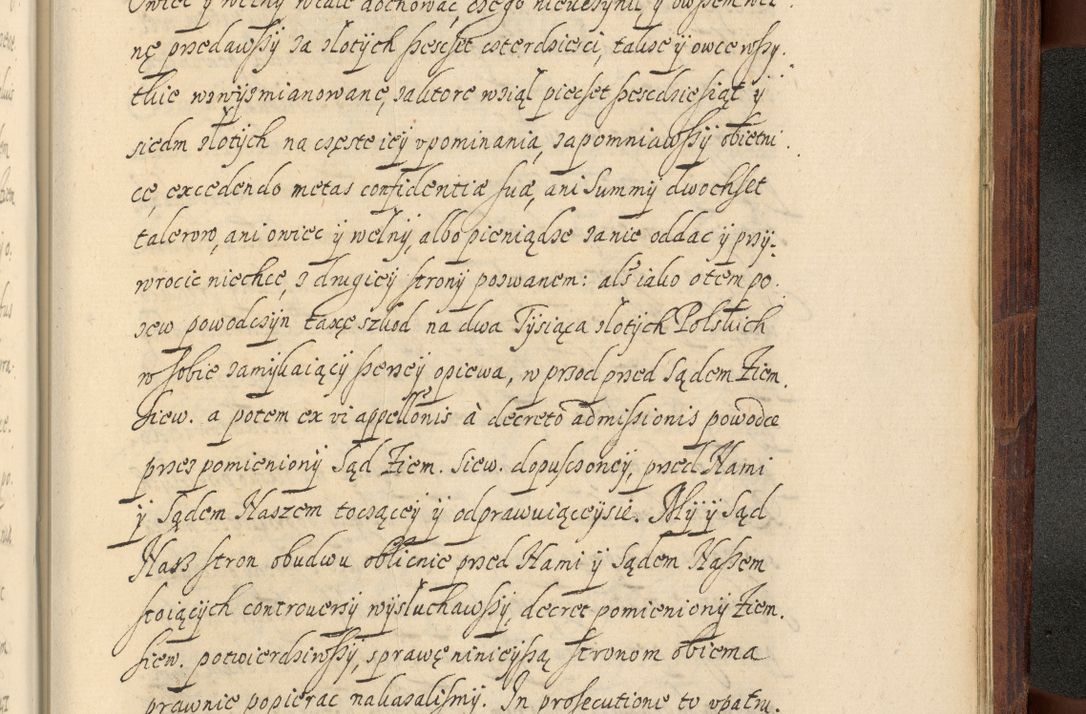 Owiec y wełny wcale dochować czego nieuczynił y owszem weł
nę przedawszy za złotych szescset czterdziesci, takze y owce wszy-
tkie wzwyszmianowane, zaktore wziął piecset szescdziesiąt y
siedm złotych na częste iey vpominania, zapomniawszy obietni
cę, excedendo metas confidentiæ suæ, ani Summy dwochset
talerow, ani owiec y wełny, albo pieniądze zanie oddac y przy-
wrocic niechce, z drugiey strony pozwanem: alś iako otem po
zew powodczyn taxę szkod na dwa Tysiąca złotych Polskich
w sobie zamykaiący szerzey opiewa, w przod przed Sądem Ziem.
Siew. a potem ex vi appellõnis à decreto admissionis powodce
przez pomieniony Sąd Ziem. Siew. dopusczoney, przed Nami
y Sądem Naszem toczącey y odprawuiąceysie. My y Sąd
Nasz stron obudwu oblicnie przed Nami y Sądem Naszem
stoiących controuersy wysłuchawszy, decret pomieniony Ziem.
Siew. potwierdziwszy, sprawę ninieyszą stronom obiema
prawnie popierac nakazalismy. In prosecutione tu vpatru-